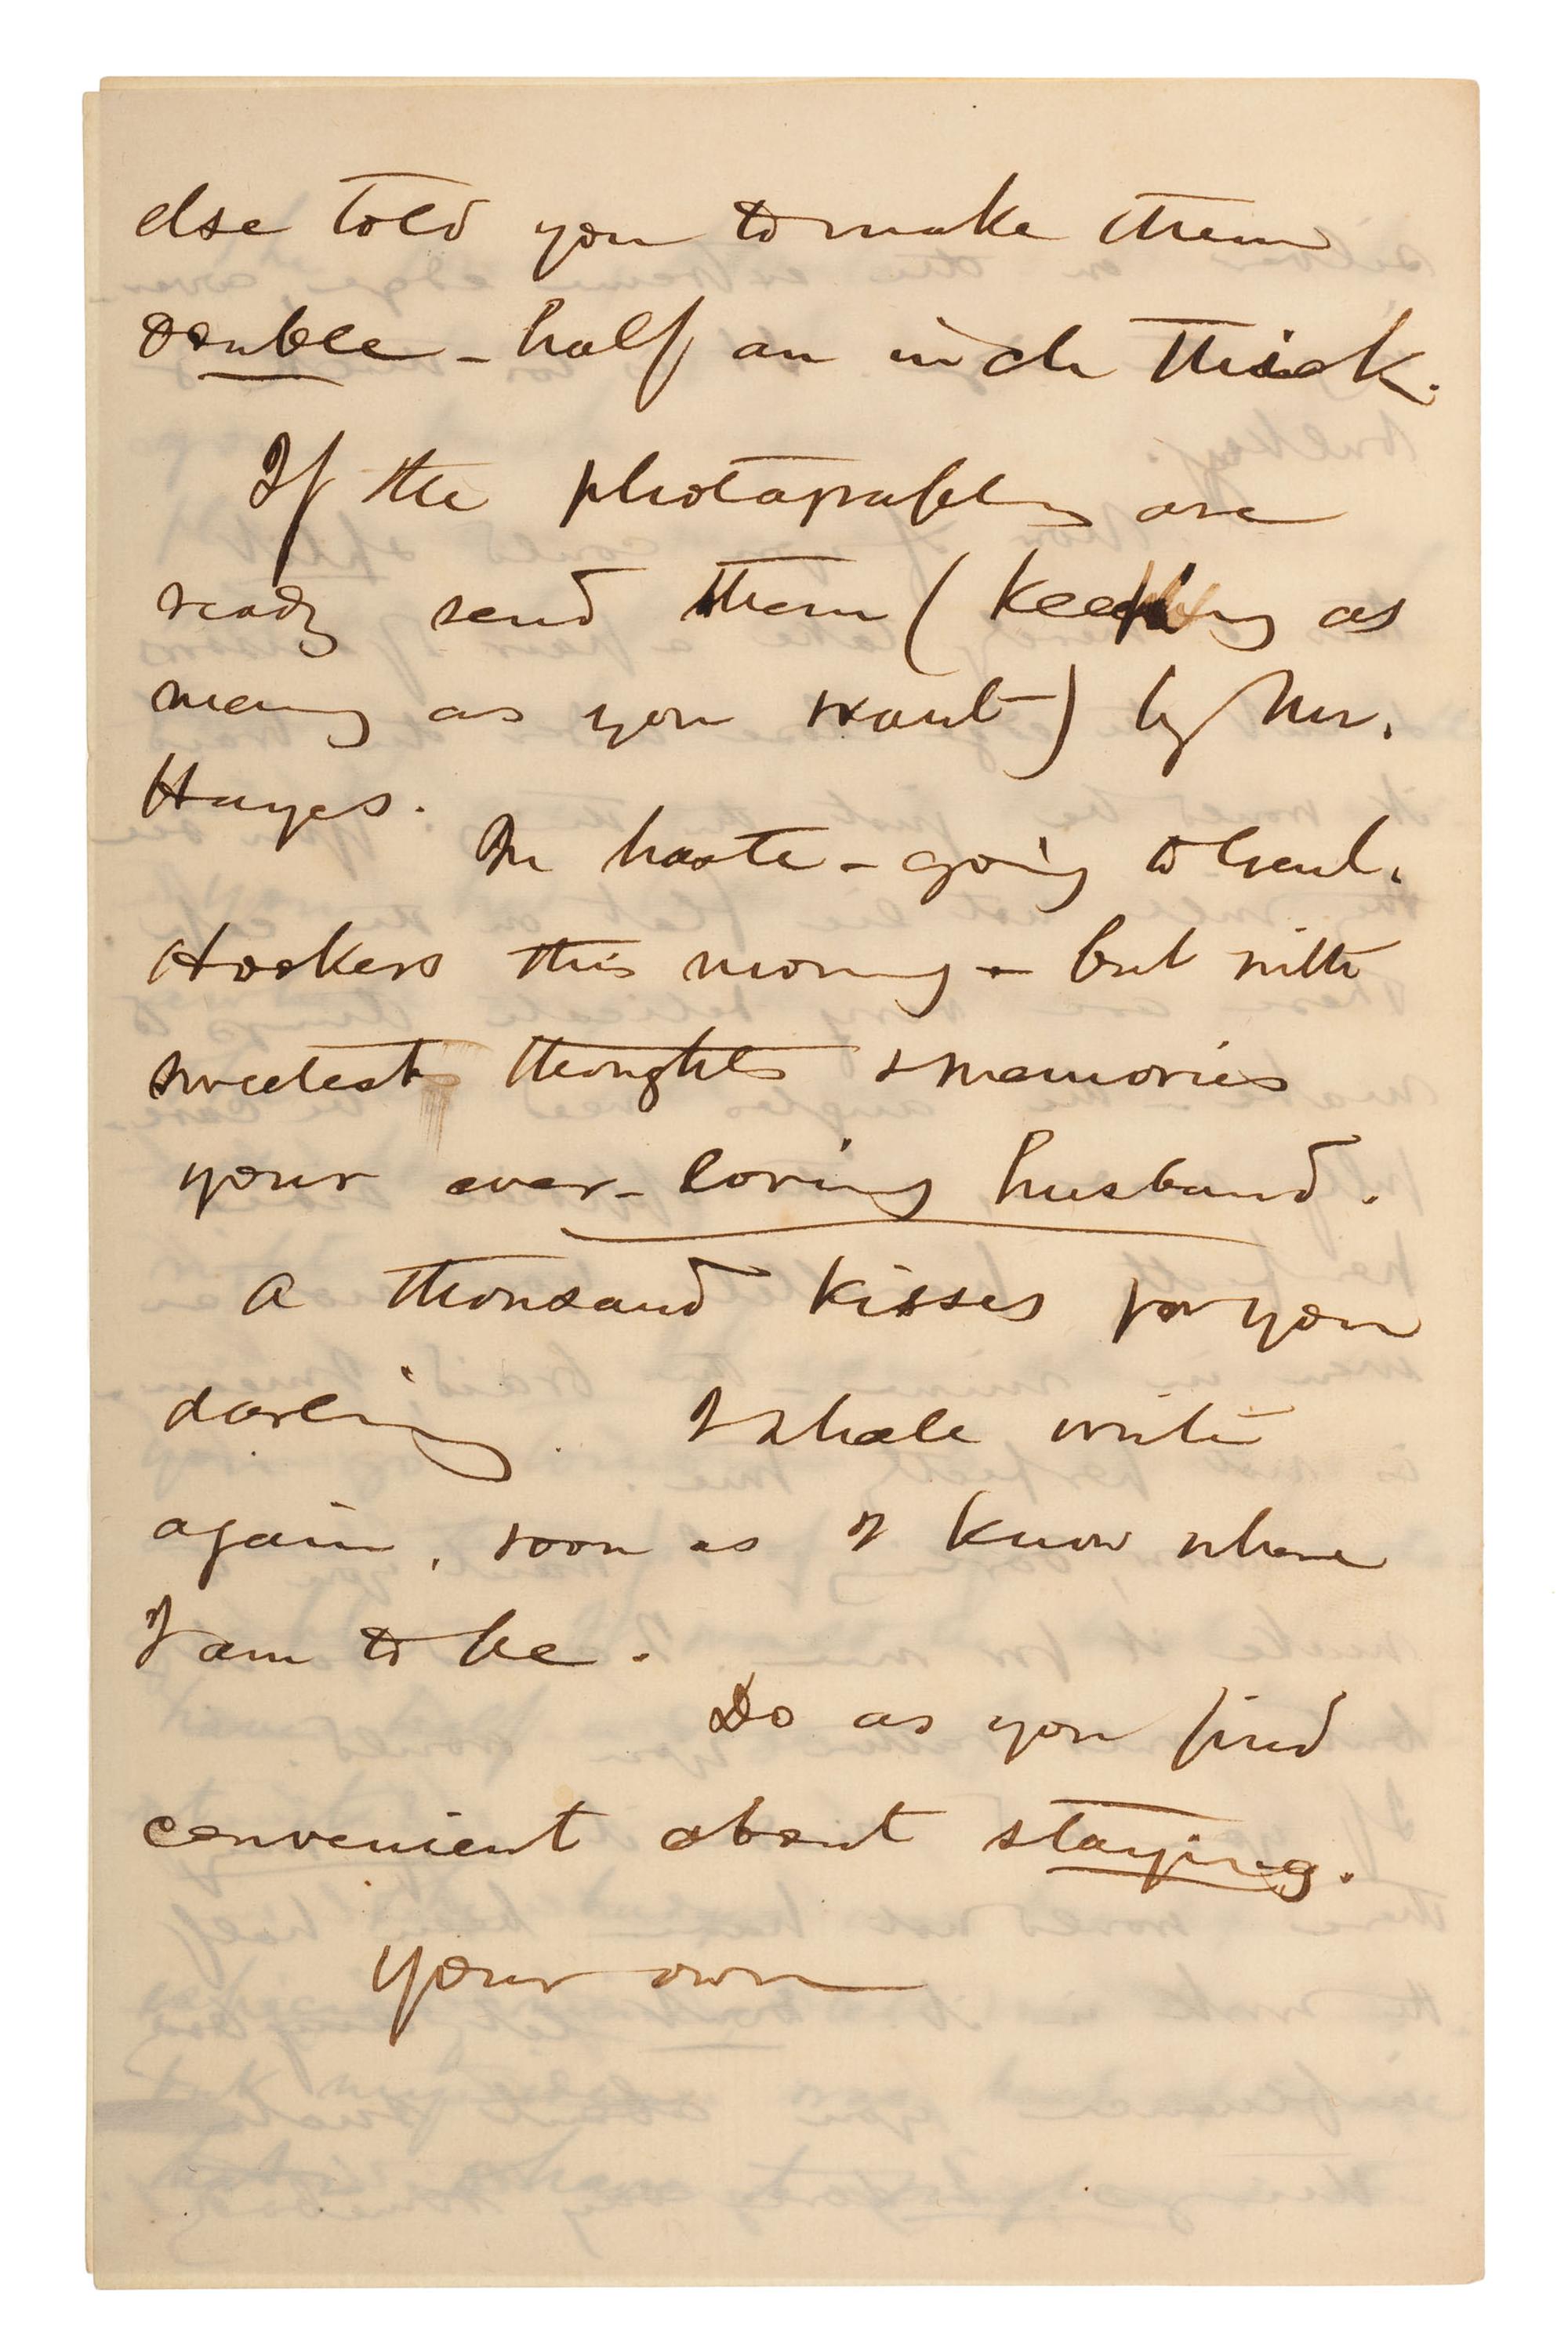 else told you to make them
double - half an inch thick.
If the photographs are
ready send them (keeping as
many as you want) by Mr.
Hayes.
In haste - going to Genl.
Hookers this morning - but with
sweetest thoughts & memories
your ever-loving husband.
A thousand kisses for you
darling. I shall write
again, soon as I know where
I am to be.
Do as you find
convenient about staying.
Your own